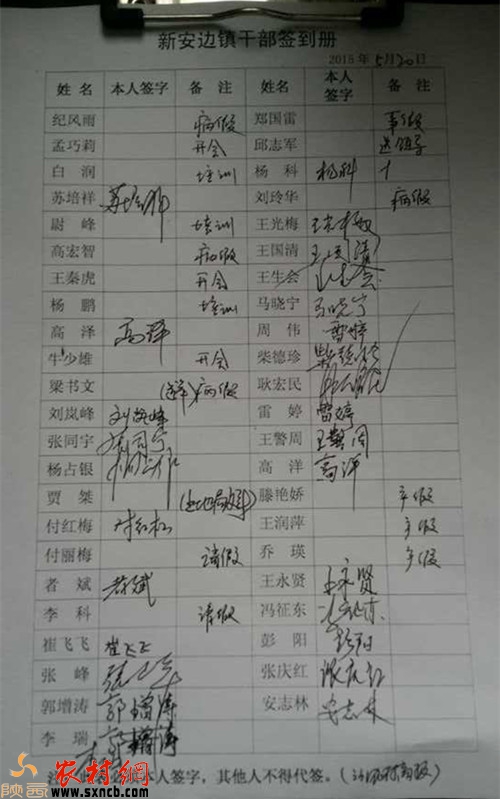 新安边镇干部签到册
2015年5月20日
姓名 本人签字 备注 姓名 本人签字 备注
纪风雨 病假 郑国雷 事假
孟巧莉 开会 邱志军
白润 培训 杨科 杨科
苏培祥 刘玲华 病假
尉峰 培训 王光梅
高宏智 病假 王国清 王国清
王秦虎 开会 王生会
杨鹏 培训 马晓宁 马晓宁
高泽 周伟 雷婷
牛少雄 开会 柴德珍
梁书文 病假 耿宏民
刘岚峰 刘岚峰 雷婷 雷婷
张同宇 张同宇 王警周 王警周
杨占银 高洋 高洋
贾桀 滕艳娇 产假
付红梅 王润萍 产假
付丽梅 请假 乔瑛 产假
者斌 者斌 王永贤 王永贤
李科 请假 冯征东
崔飞飞 崔飞飞 彭阳
张峰 张庆红 张庆红
郭增涛 郭增涛 安志林 安志林
李瑞 郭增涛
本人签字，其他人不得代签。
陕西农村网
www.sxncb.com